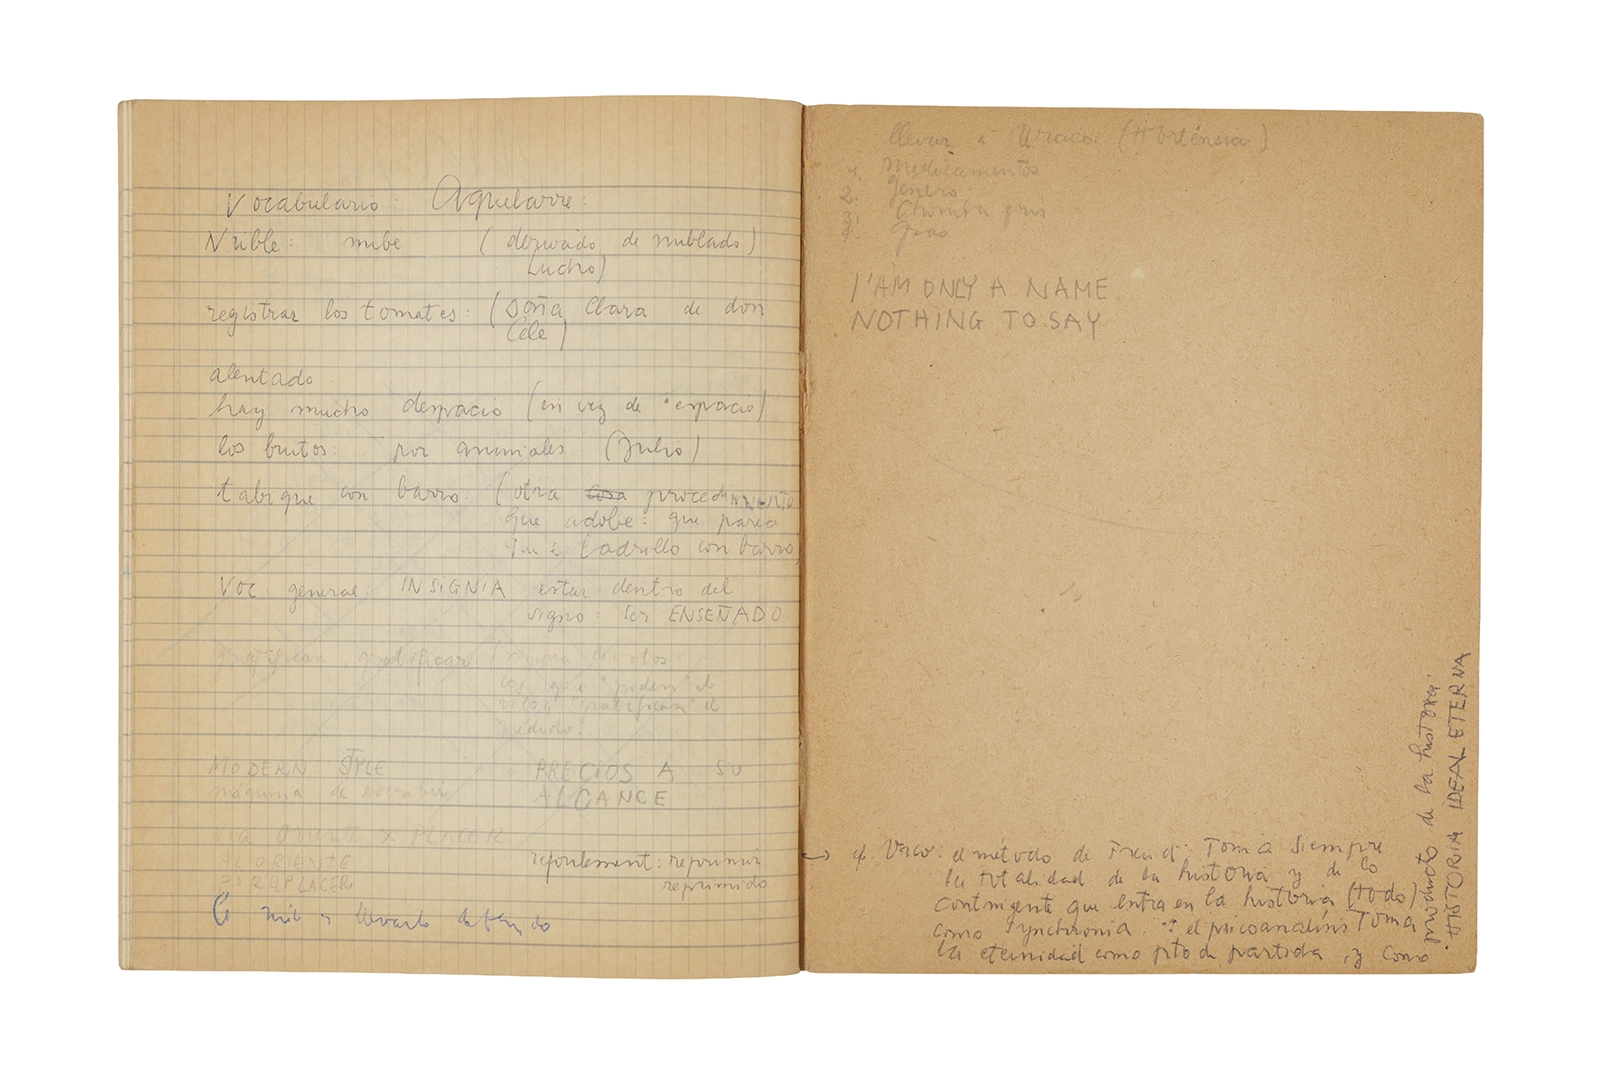 Vocabulario: Aquelarre:
Nuble: nube (derivado de nublado)
Lucho)
registrar los tomates: (Doña Clara de don
Cele)
alentado
hay mucho despacio (en vez de "espacio)
los brutos: por animales (Julio)
tabique con barro. (otra cosa procedimiento
que adobe: que
que ladrillo con barro
Voc. general: INSIGNIA estar dentro del
signo: ser ENSEÑADO
gratificar
los que "piden" el
"gratifican" el
pedido.
MODERN STYLE PRECIOS A SU
máquina de escribir ALCANCE
PLACER
AL ORIENTE refoulement: reprimir
reprimido
llevar a (Hortensia)
1. Medicamentos
2. Género
3. Chomba gris
4.
I'AM ONLY A NAME
NOTHING TO SAY
→ cf. Vico: el método de Freud: Toma siempre
la totalidad de la historia y de lo
contingente que entra en la historia (todo)
como synchronia. el psicoanálisis Toma
la eternidad como pto de partida, y como
producto de la historia.
HISTORIA IDEAL ETERNA